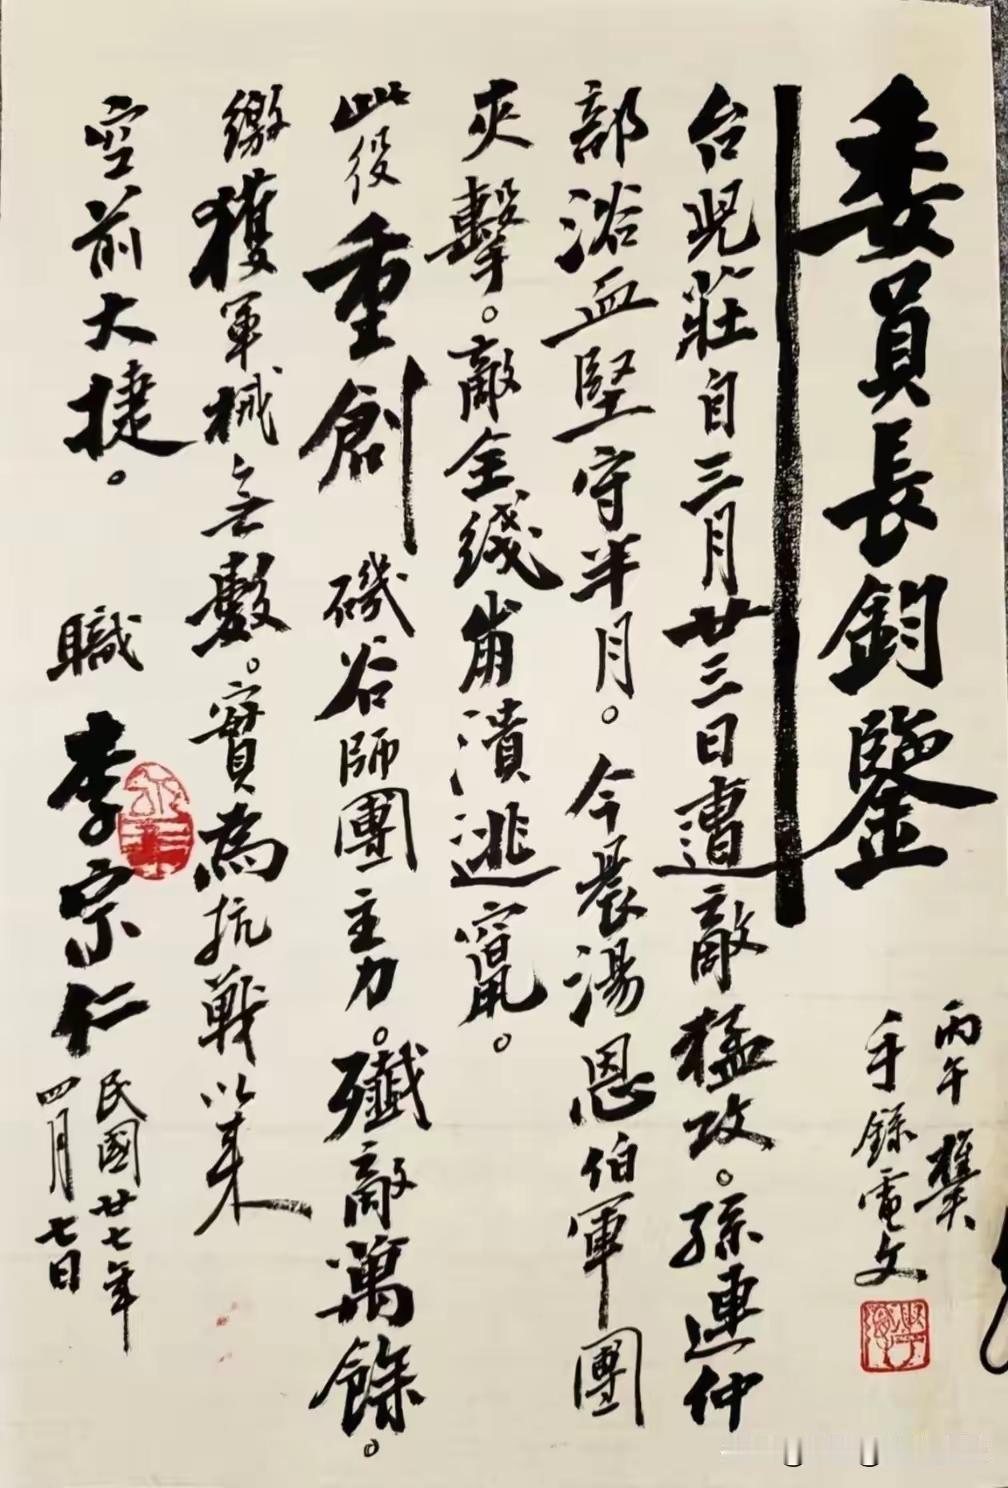 委員長鈞鑒
丙午 樊
手錄電文
台児莊自三月廿三日遭敵猛攻。孫連仲
部浴血堅守半月。今晨湯恩伯軍團
夾擊。敵全线崩潰逃竄。
此役重創磯谷師團主力。殲敵萬餘。
繳獲軍械无數。實為抗戰以来
空前大捷。 職 李宗仁
民國廿七年
四月七日